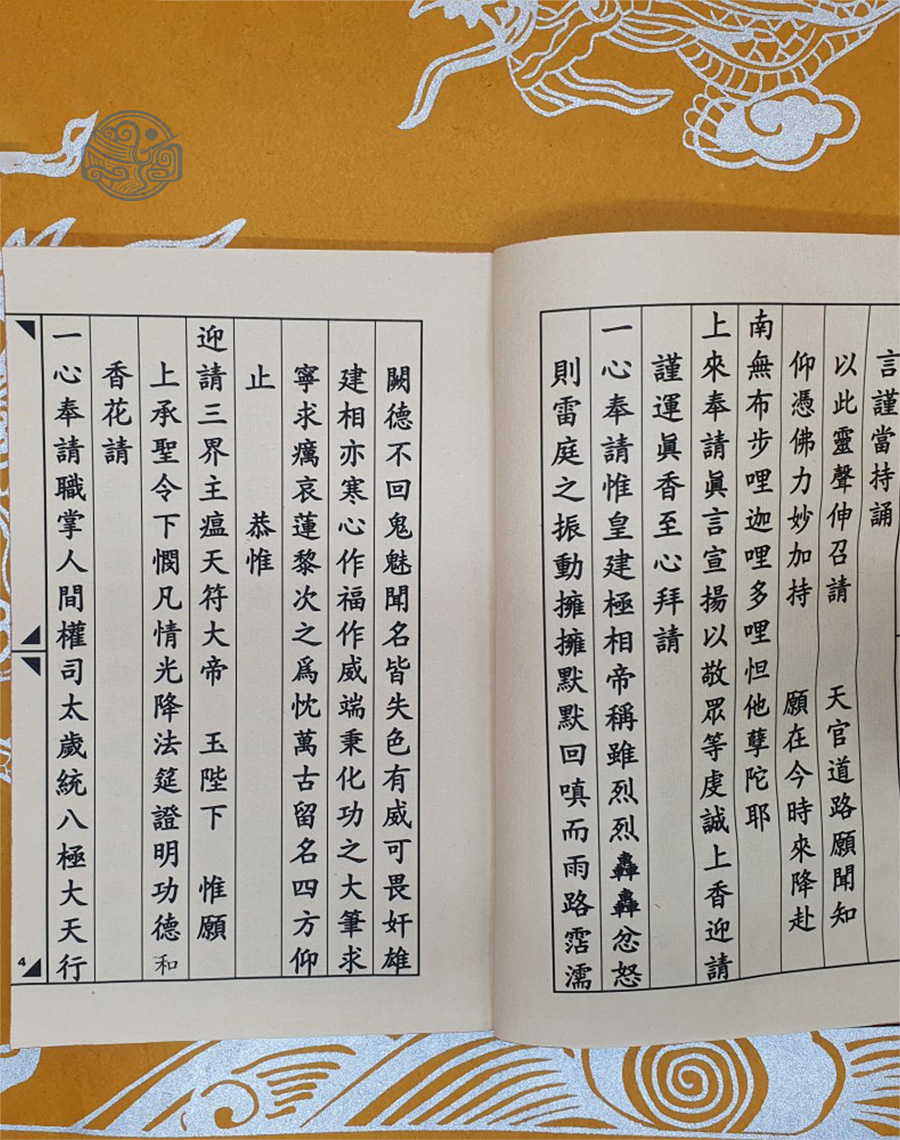 言謹當持誦
以此靈聲伸召請　天官道路願聞知
仰憑佛力妙加持　願在今時來降赴
南無布步哩迦哩多哩怛他孽陀耶
上來奉請眞言宣揚以敬眾等虔誠上香迎請
謹運眞香至心拜請
一心奉請惟皇建極相帝稱雖烈烈轟轟忿怒
則雷庭之振動擁擁默默回嗔而雨路霑濡
闕德不回鬼魅聞名皆失色有威可畏奸雄
建相亦寒心作福作威端秉化功之大筆求
寧求癘哀蓮黎次之爲忱萬古留名四方仰
止　恭惟
迎請三界主瘟天符大帝　玉陛下　惟願
上承聖令下憫凡情光降法筵證明功德和
香花請
一心奉請職掌人間權司太歲統八極大天行
4